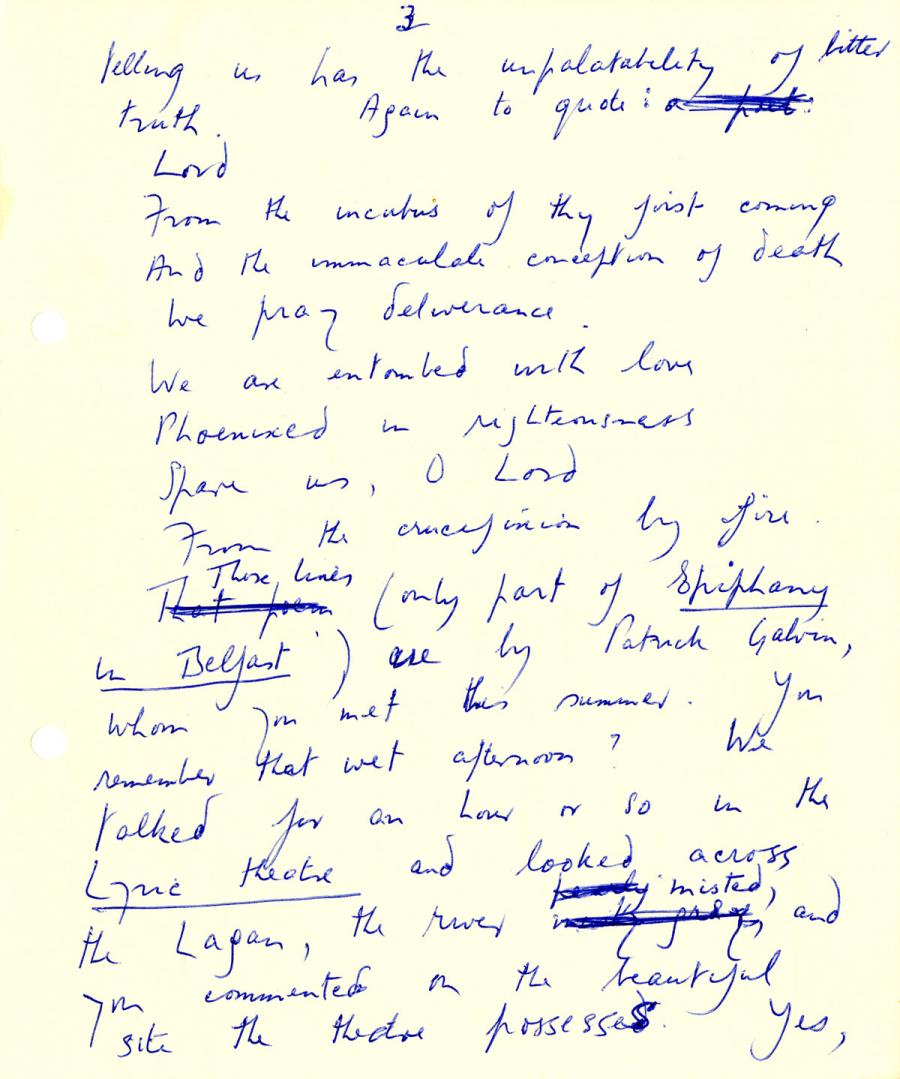 3
telling us has the unpalatability of bitter
truth. Again to quote: a poet:
Lord
From the incubus of thy first coming
And the immaculate conception of death
We pray deliverance.
We are entombed with love
Phoenixed in righteousness
Spare us, O Lord
From the crucifixion by fire.
These lines
That poem (only part of Epiphany
in Belfast) are by Patrick Galvin,
whom you met this summer. You
remember that wet afternoon? We
talked for an hour or so in the
Lyric theatre and looked across
misted,
the Lagan, the river and
you commented on the beautiful
site the theatre possesses. Yes,